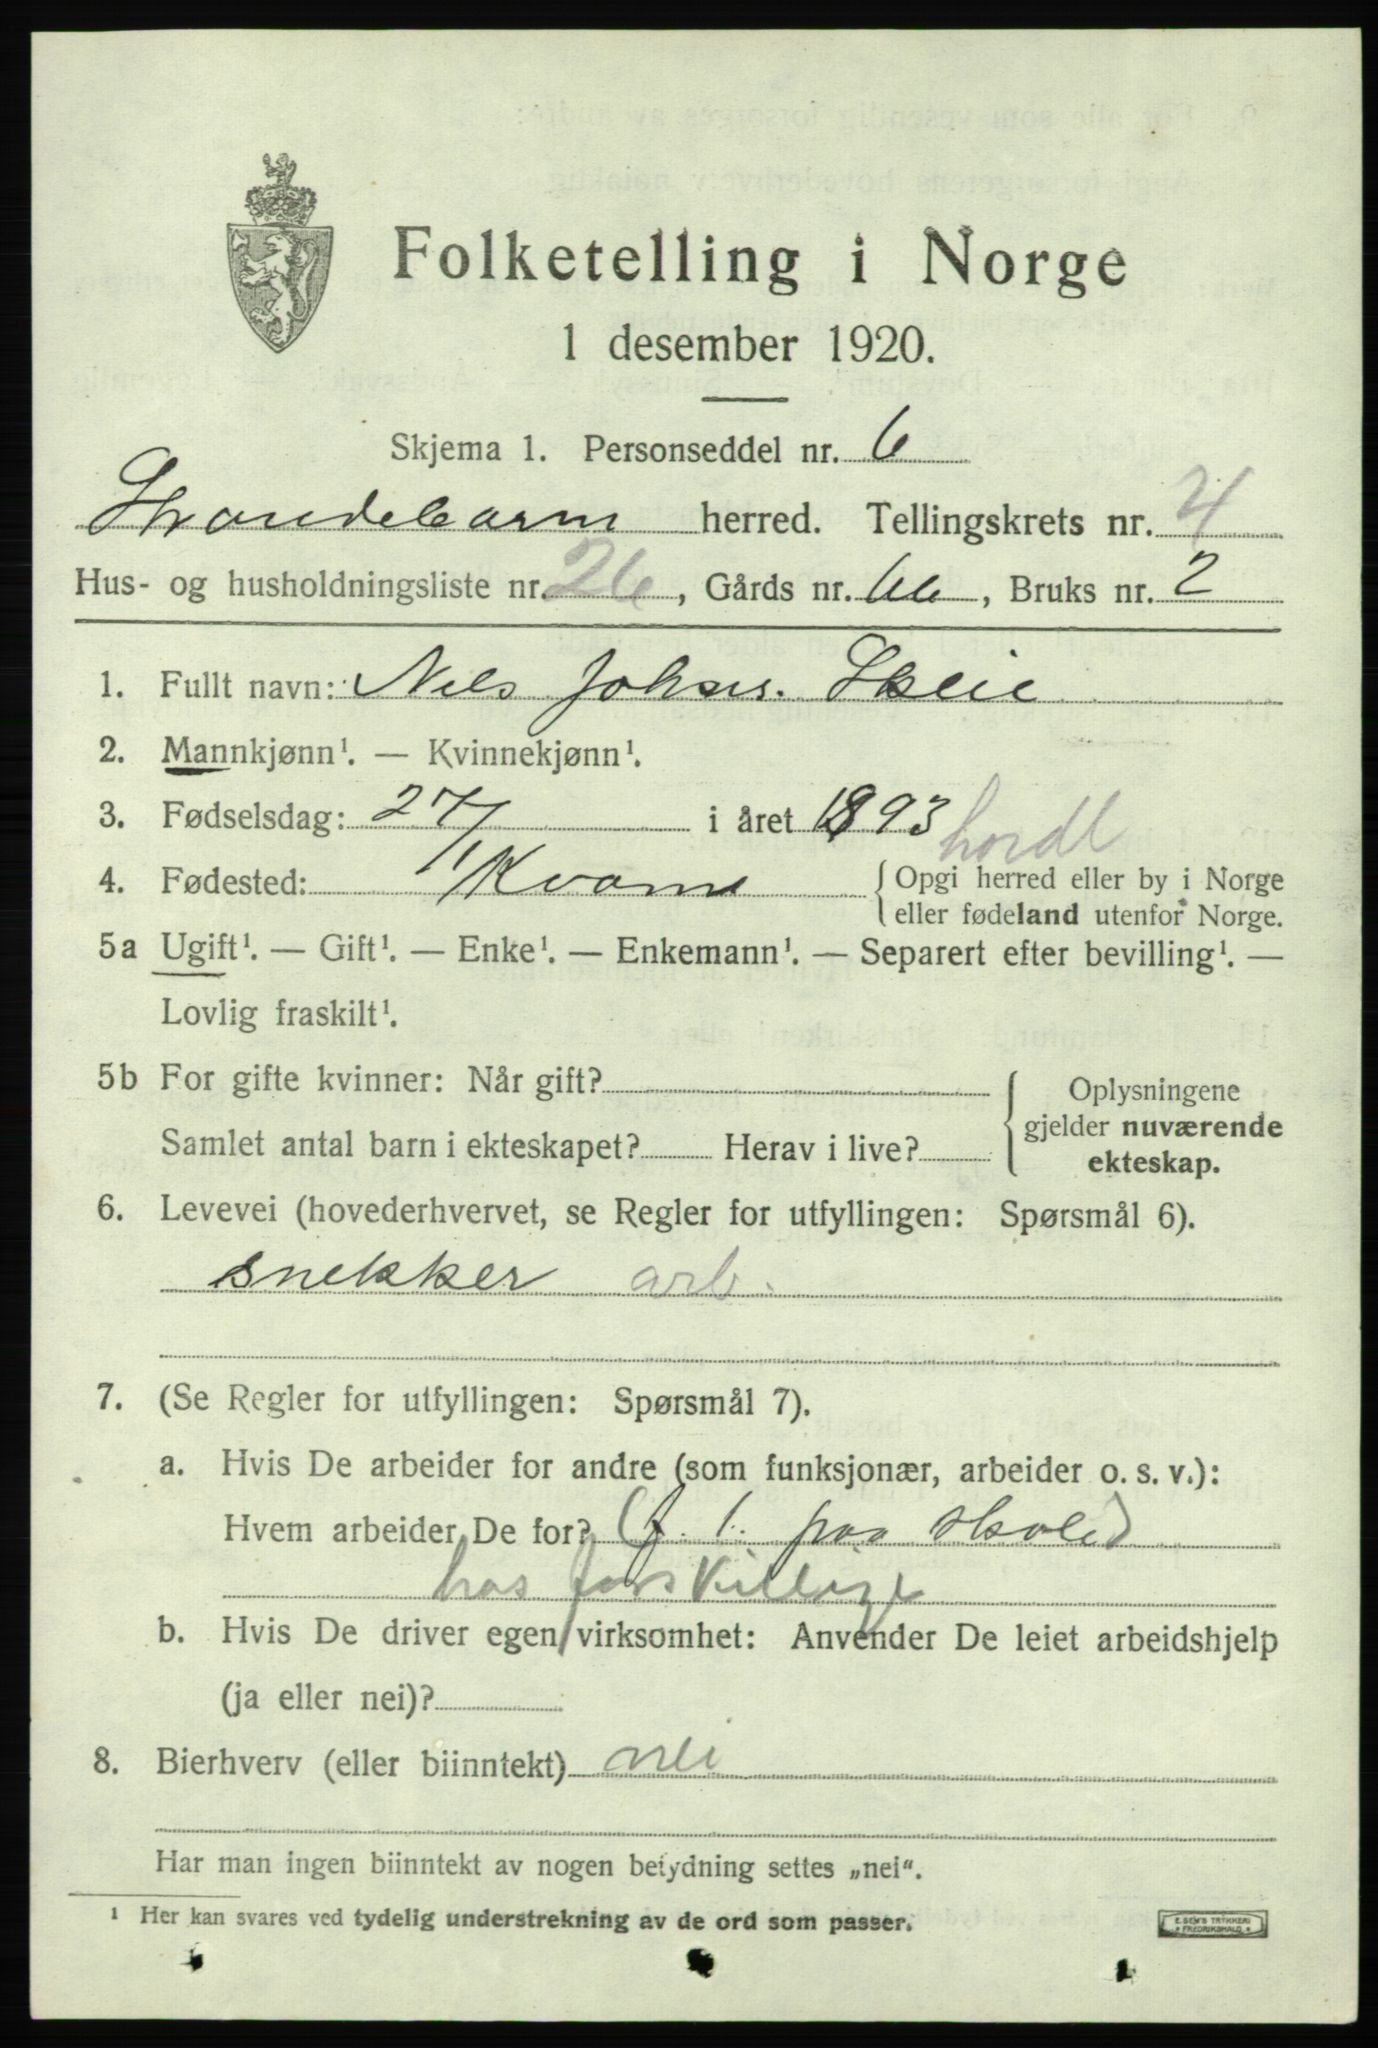 Folketelling i Norge
1 desember 1920.
Skjema 1. Personseddel nr. 6
Strandebarm herred. Tellingskrets nr. 4
Hus- og husholdningsliste nr. 26, Gårds nr. 66, Bruks nr. 2
1. Fullt navn: Nels Johns. Skeie
2. Mannkjønn¹. — Kvinnekjønn¹.
3. Fødselsdag: 27/1 i året 1893
hordl
4. Fødested: Kvam {Opgi herred eller by i Norge
eller fødeland utenfor Norge.
5a Ugift¹. — Gift¹. — Enke¹. — Enkemann¹. — Separert efter bevilling¹. —
Lovlig fraskilt¹.
5b For gifte kvinner: Når gift?
Samlet antal barn i ekteskapet? Herav i live?
Oplysningene
gjelder nuværende
ekteskap.
6. Levevei (hovederhvervet, se Regler for utfyllingen: Spørsmål 6).
snekker arb.
7. (Se Regler for utfyllingen: Spørsmål 7).
a. Hvis De arbeider for andre (som funksjonær, arbeider o. s. v.):
Hvem arbeider De for? (f. t. paa skole)
hos forskillige
b. Hvis De driver egen virksomhet: Anvender De leiet arbeidshjelp
(ja eller nei)?
8. Bierhverv (eller biinntekt) nei
Har man ingen biinntekt av nogen betydning settes „nei“.
¹ Her kan svares ved tydelig understrekning av de ord som passer.
E. SEM'S TRYKKERI
FREDRIKSHALD